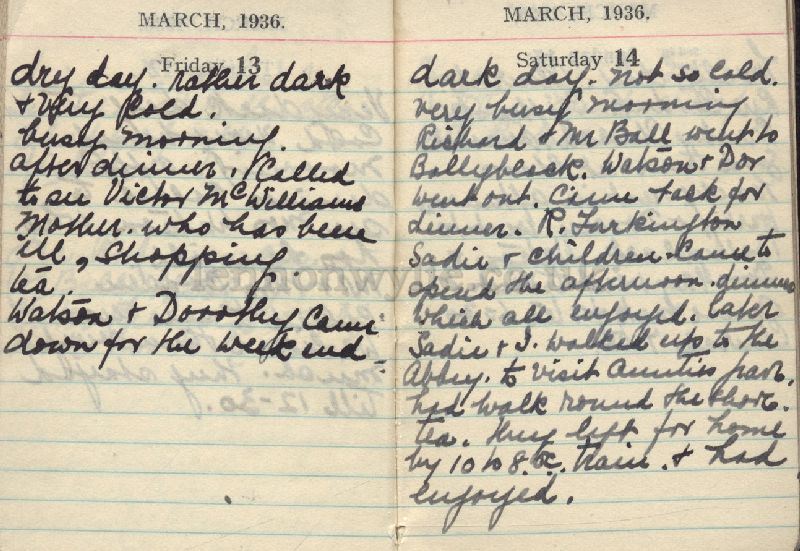 MARCH, 1936.
Friday 13
dry day. rather dark
& very cold.
busy morning.
after dinner. I Called
to see Victor McWilliams
Mother. who has been
ill, shopping.
tea.
Watson & Dorothy Came
down for the week end
MARCH, 1936.
Saturday 14
dark day. not so cold.
very busy morning
Richard & Mr Ball went to
Ballyblack. Watson & Dor
went out. Came back for
dinner. R. Turkington
Sadie & children Came to
spend the afternoon. dinner
which all enjoyed. later
Sadie & I. walked up to the
Abbey. to visit Aunties grave.
had walk round the shore.
tea. they left for home
by 10 to 8. train. & had
enjoyed.